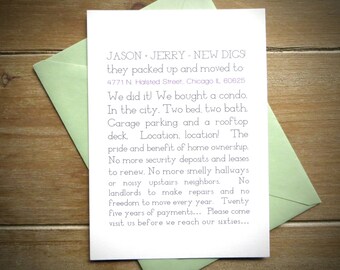 JASON + JERRY - NEW DIGS!
they packed up and moved to:
4771 N. Halsted Street, Chicago IL 60625
We did it! We bought a condo.
In the city. Two bed, two bath.
Garage parking and a rooftop
deck. Location, location! The
pride and benefit of home ownership.
No more security deposits and leases
to renew. No more smelly hallways
or noisy upstairs neighbors. No
landlords to make repairs and no
freedom to move every year. Twenty
five years of payments.... Please come
visit us before we reach our sixties...